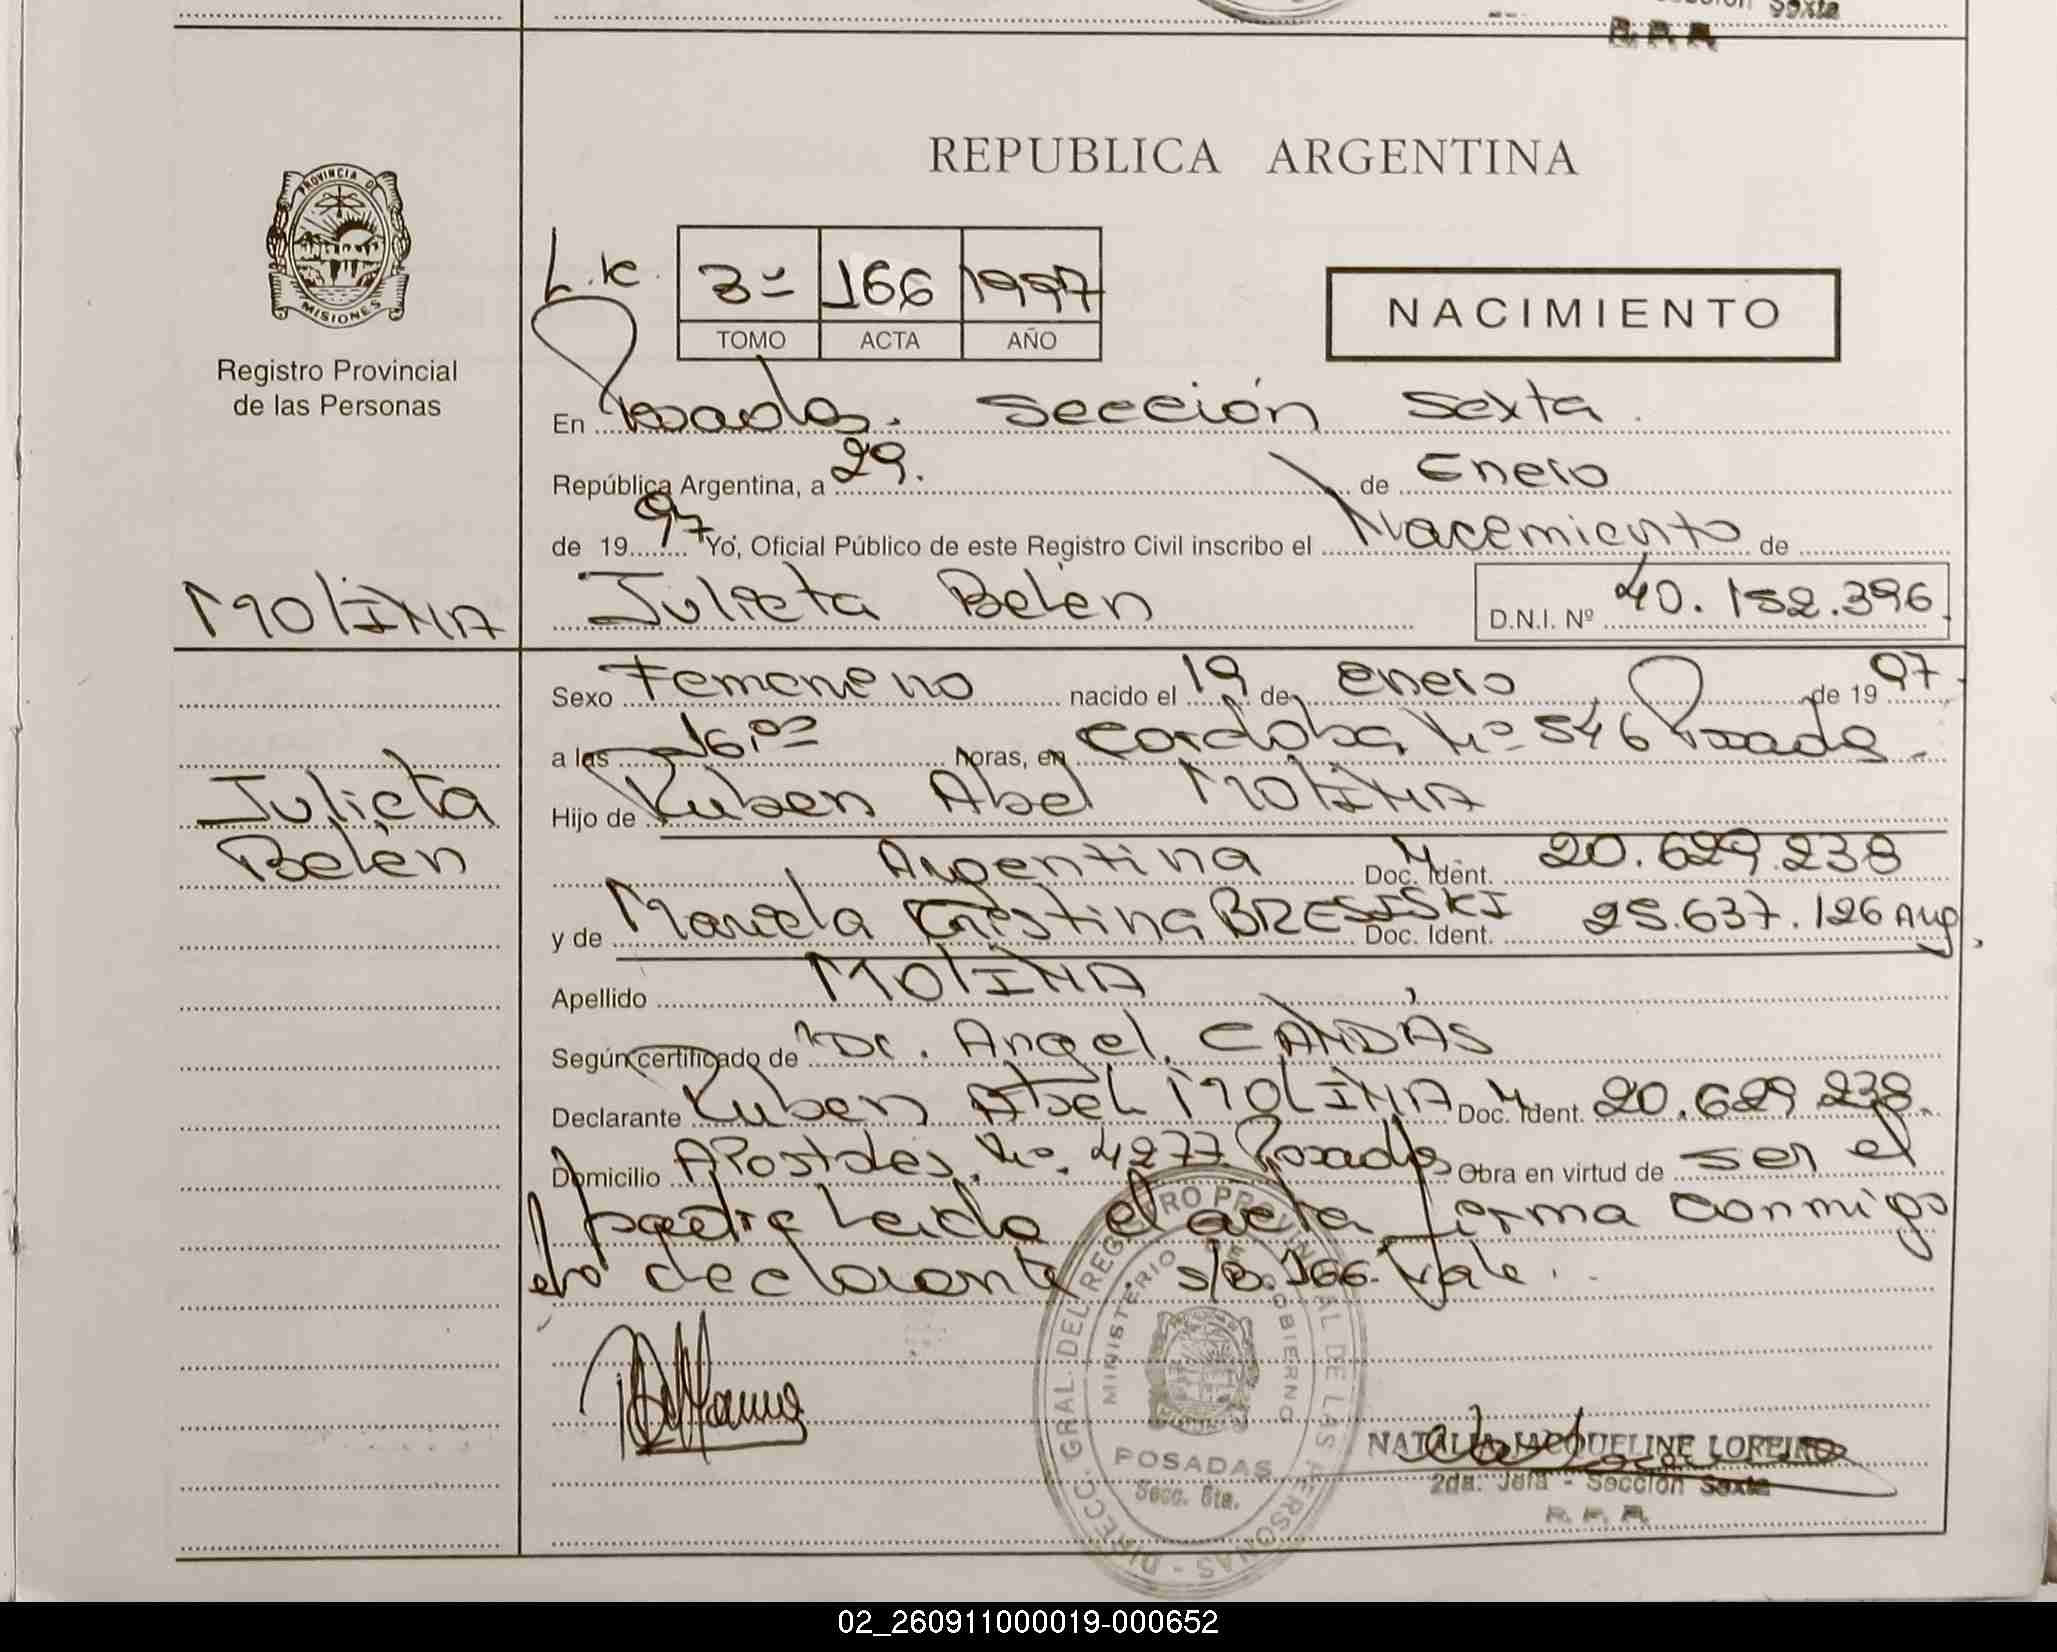 Sección Sexta
R. P. P.
PROVINCIA DE
MISIONES
Registro Provincial
de las Personas
REPUBLICA ARGENTINA
3º 166 1997
TOMO ACTA AÑO
NACIMIENTO
En Posadas. Sección Sexta.
República Argentina, a 29. de Enero
de 1997 Yo, Oficial Público de este Registro Civil inscribo el Nacimiento de
MOLINA Julieta Belén D.N.I. Nº 40.152.396
Sexo Femenino nacido el 19 de enero de 1997.
a las 16,00 horas, en Cordoba Nº 546 Posadas.
Julieta
Hijo de Ruben Abel MOLINA
Belén
Argentina Doc. Ident. 20.629.238
y de Mariela Cristina BRESISKI Doc. Ident. 25.637.126 Arg.
Apellido MOLINA
Según certificado de Dr. Angel CANDÁS
Declarante Ruben Abel MOLINA Doc. Ident. 20.629.238.
Domicilio Apostoles Nº 4277 Posadas Obra en virtud de ser el
padre Leida el acta firma conmigo
el declarante. s/B. 166. Vale.
DIRECC. GRAL. DEL REGISTRO PROVINCIAL DE LAS PERSONAS
MINISTERIO DE GOBIERNO
POSADAS
Secc. 6ta.
NATALIA JACQUELINE LOREIRO
2da. Jefa - Sección Sexta
R. P. P.
02_260911000019-000652